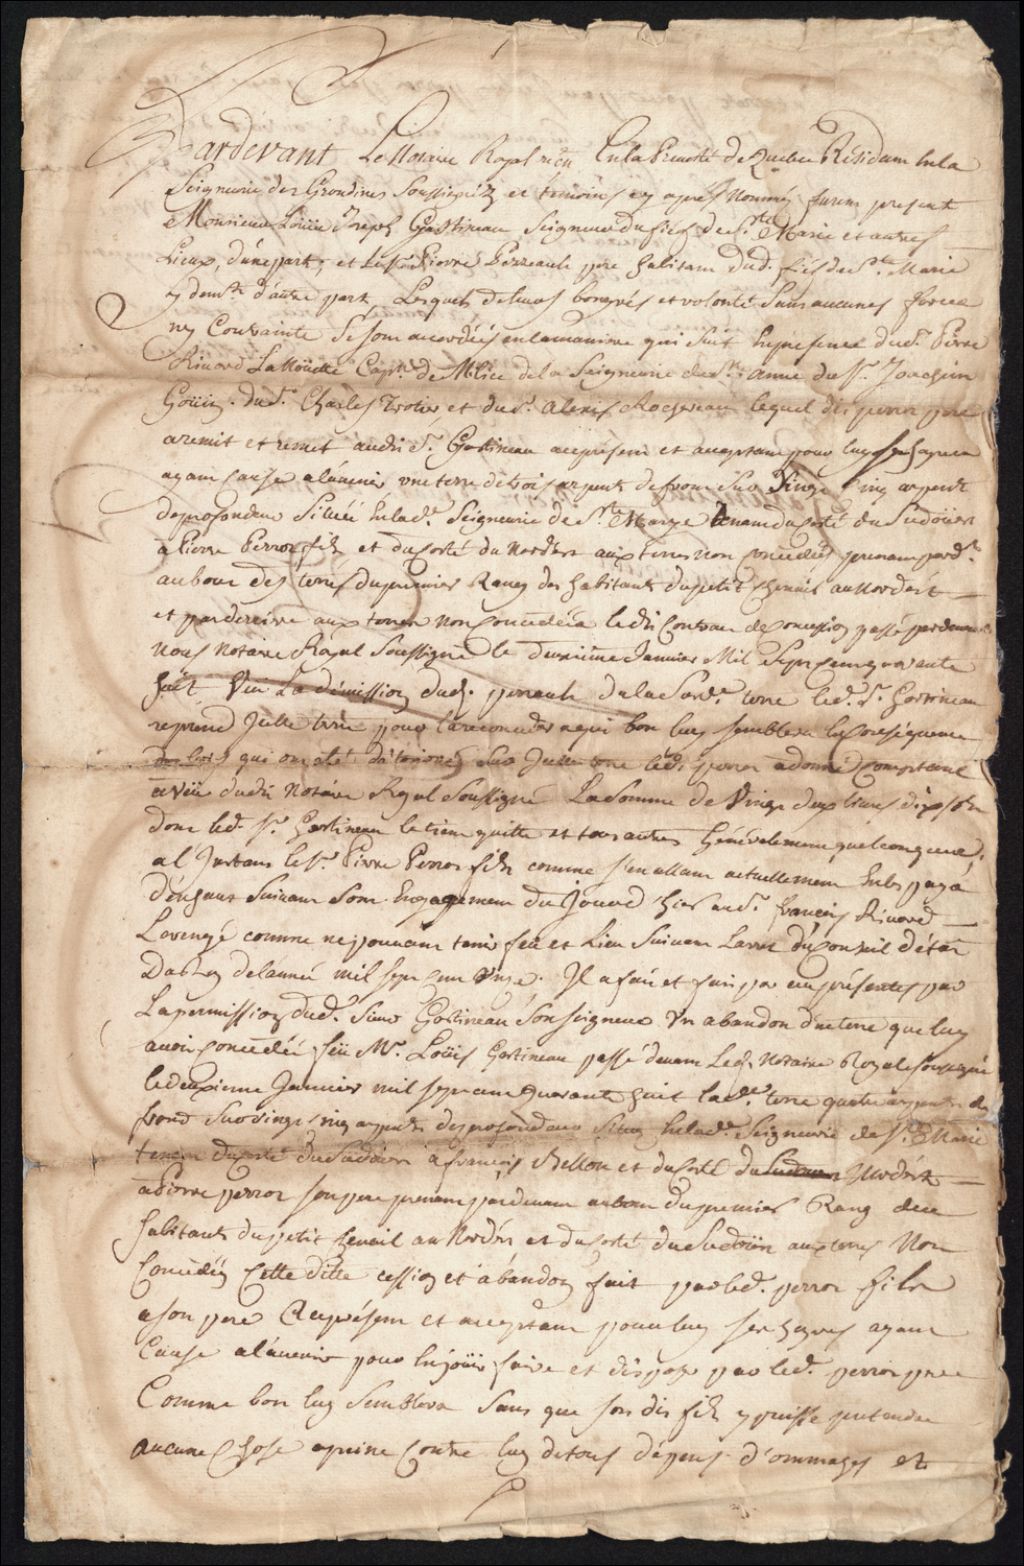 Pardevant Le Notaire Royal En la Prevosté de Quebec Résidant En la
Seigneurie des Grondines Soussigné et témoins cy apres Nommés, furent present
Monsieur Loüis Joseph Gastineau Seigneur du fief de Ste Marie et autres
Lieux, d'une part, et le Sr Pierre Perreault pere habitant dud. fief de Ste Marie
y demt d'autre part, Lesquels de leurs bongrés et volonté Sans aucunes force
ny Contrainte Se sont accordées en la maniere qui Suit En presence du Sr Pierre
Rivard La Noüette Capt. de Milice de la Seigneurie de Ste Anne du Sr. Joachim
Goüin. du Sr. Charles Trotier et du Sr. Alexis Rochereau lequel dis perrot pere
a remit et remet audit Sr. Gastineau a ce présent et acceptant pour luy Ses hoyrs
ayant Cause a l'avenir une terre de trois arpents de front Sur Vingt Cinq arpents
de profondeur Située En lad. Seigneurie de Ste Marie tenant du Costé du Sudoüest
a Pierre Perrot fils et du Costé du Nordest aux terres non Concedées prenant pard.
au bout des terres du premier Rang des habitants du petit Chenail au Nordest
et par derriere aux terres Non Concedées ledit Contrat de Concession passé pardevant
Nous Notaire Royal Soussigné le deuxieme Janvier Mil Sept Cent quarante
huit Vue La démission dud. perrault de la Susd. terre led. Sr. Gastineau
reprend Jcelle terre pour la reconceder a qui bon luy Semblera En Conséquence
qui ont été Sur Jcelle terre led. perrot a donné Comptant
a Vüe dudit Notaire Royal Soussigné La Somme de Vingt deux Livres dix sols
dont led. Sr. Gastineau le tient quitte et tous autres Généralement quelconques.
a l'Instant le Sr. Pierre Perrot fils comme S'en allant actuellement En les pays
d'enhaut Suivant Son Engagement du Jourd'hier au Sr. françois Rivard
Lavengé comme ne pouvant tenir feu et Lieu Suivant Larret du Conseil d'état
Du Roy de l'année mil Sept Cent Onze. Il a fait et fait par ces présentes par
La permission dud. Sieur Gastineau Son Seigneur Un abandon d'une terre que luy
avoit Concedée feü Mr. Loüis Gastineau passé devant Led. Notaire Royal Soussigné
le deuxieme Janvier mil Sept Cent Quarante huit lad. terre quatre arpents de
front Sur Vingt Cinq arpents de profondeur Situe En lad. Seigneurie de Ste Marie
tenant du Costé du Sudoüest a françois Bellou et du Costé du Nordest
a Pierre perrot Son pere prenant pardevant au bout du premier Rang des
habitants du petit Chenail au Nordest et du Costé du Sudoüest aux terres Non
Concédées Cette ditte cession et abandon fait par led. perrot fils
a son pere a ce présent et acceptant pour luy Ses hoyrs ayant
Cause a l'avenir pour En joüir faire et disposer par led. perrot pere
Comme bon luy Semblera Sans que Son dit fils y puisse pretendre
aucune Chose a peine Contre luy de tous dépens. d'ommages et